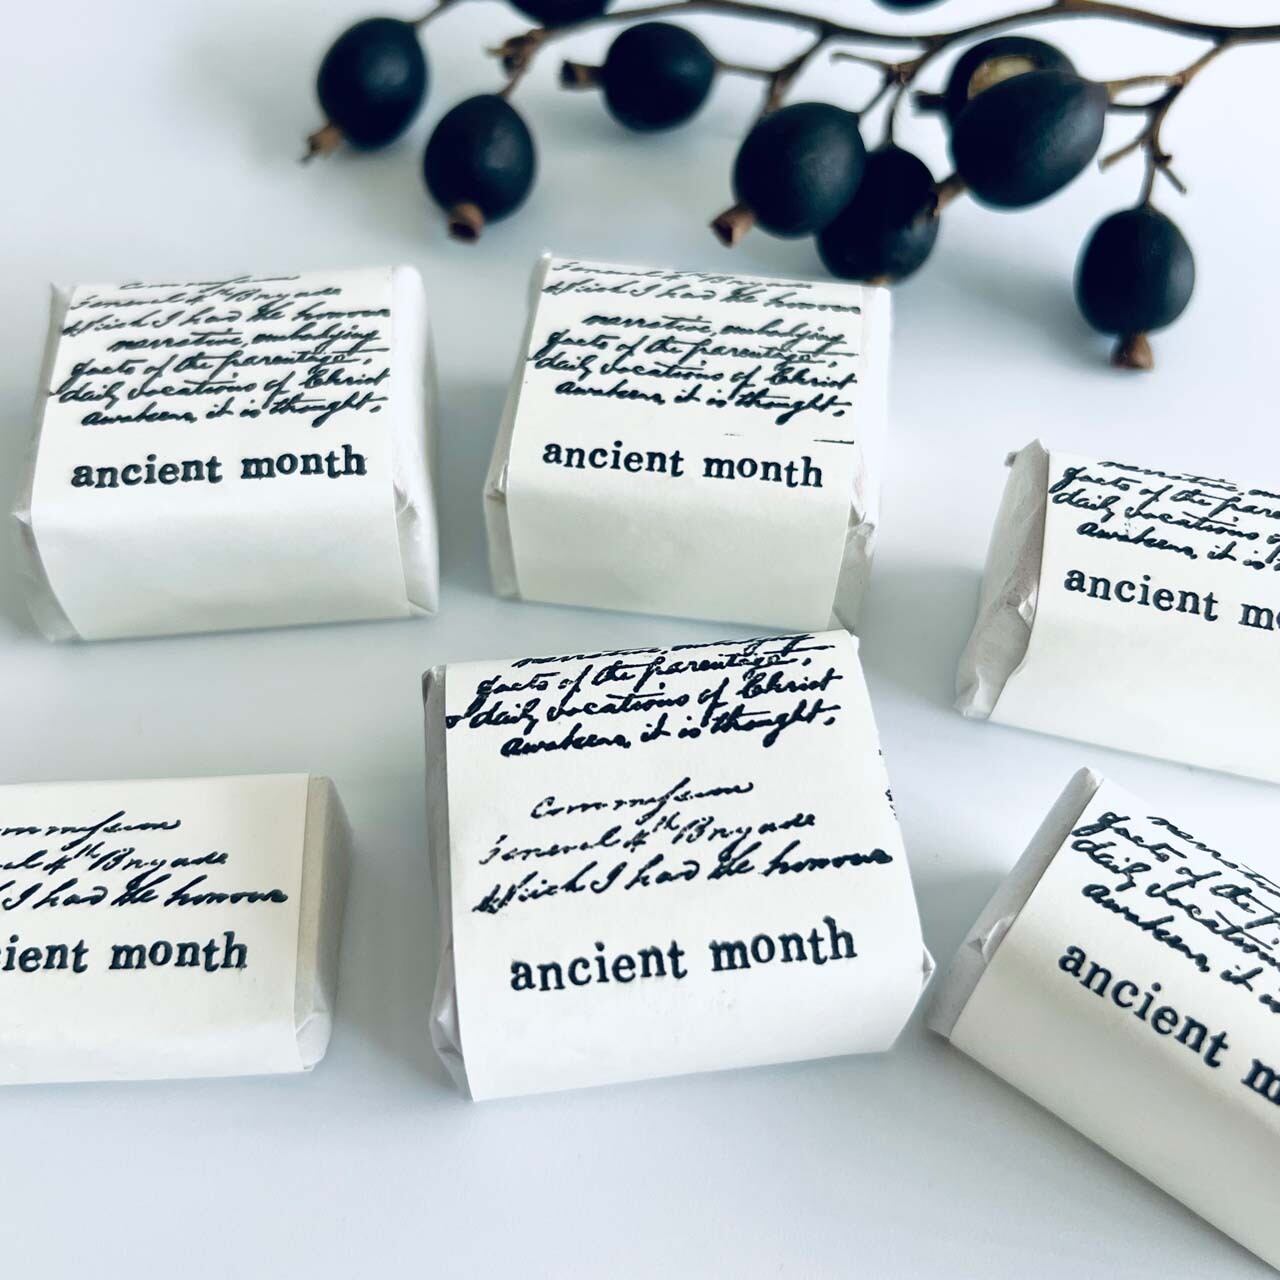 General 4th Brigade
Which I had the honour
narrative, embodying
facts of the parentage,
daily vocations of Christ
awakens, it is thought,
ancient month
General 4th Brigade
Which I had the honour
narrative, embodying
facts of the parentage,
daily vocations of Christ
awakens, it is thought,
ancient month
facts of the
daily vocations of
awakens, it is
ancient
4th Brigade
I had the honour
month
narrative, embodying
facts of the parentage,
daily vocations of Christ
awakens, it is thought,
General 4th Brigade
Which I had the honour
ancient month
facts of the
daily vocations
awakens, it is
ancient